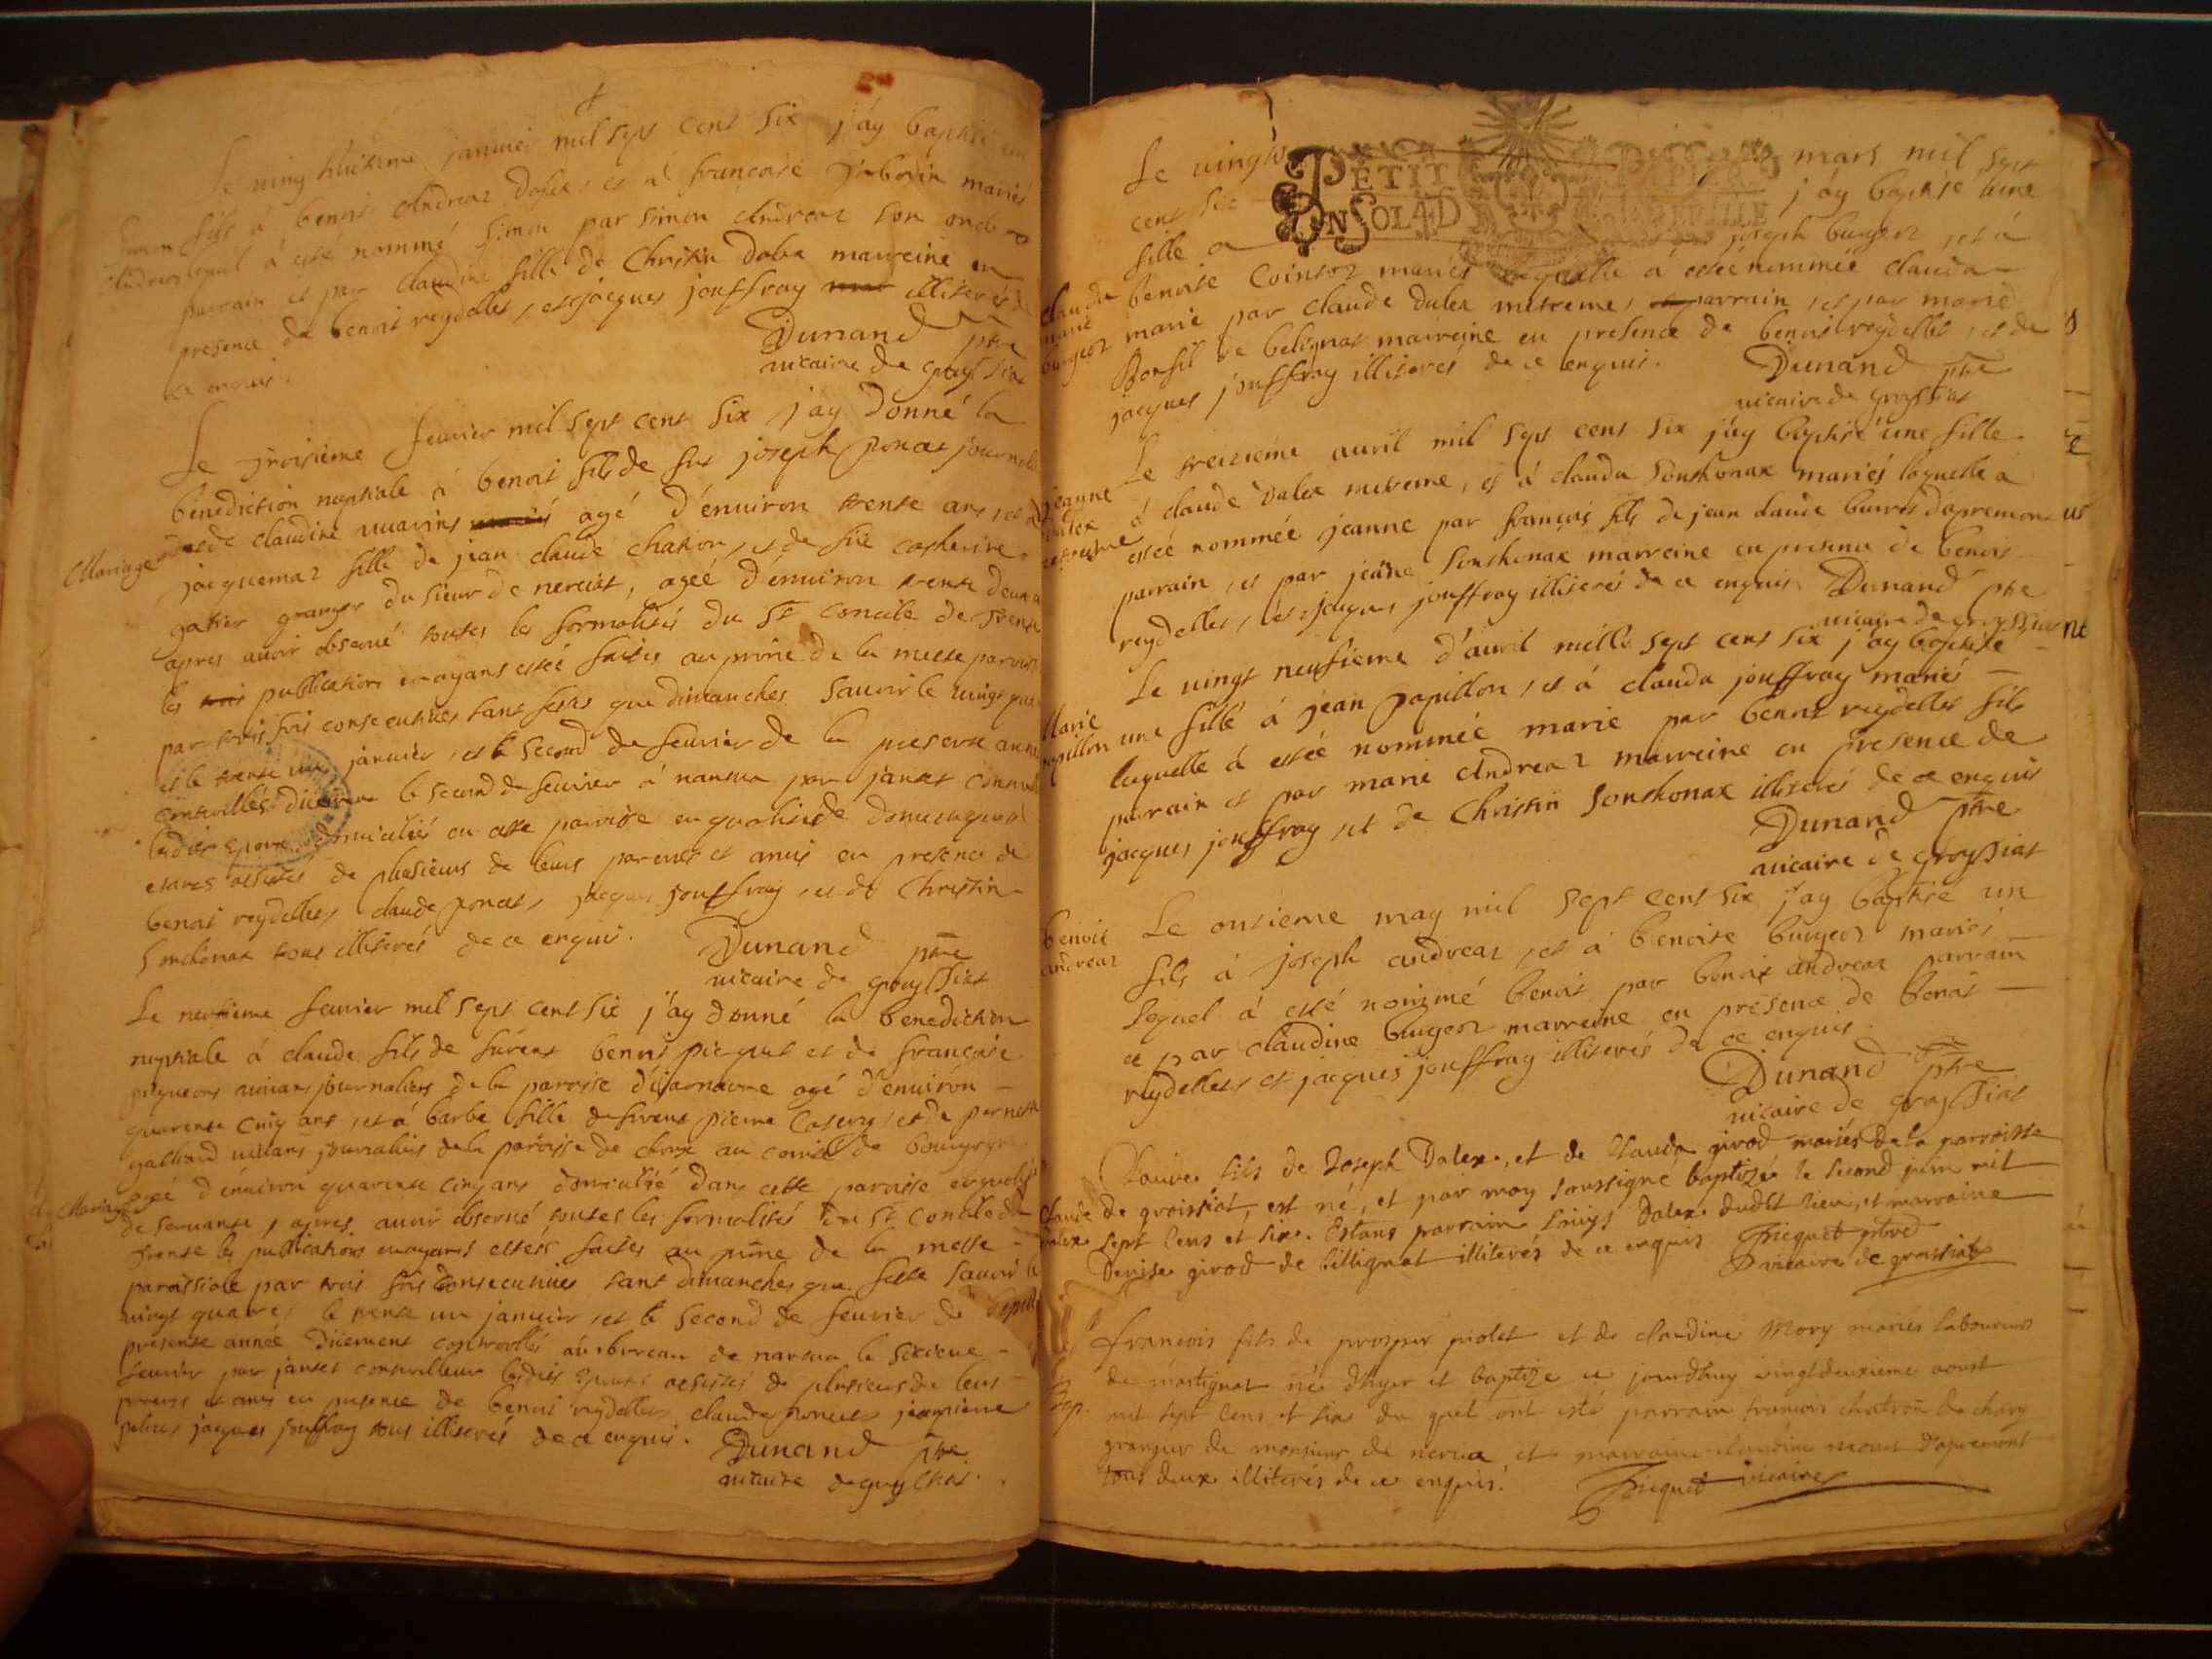 Le ving huitieme janvier mil sept cent six j'ay baptisé un
fils à benoit Andrea2 dalex et a françoise mariés
lequel à esté nommé simon par simon Andrea2 son oncle
parrain et par claudine fille de Christin dalex marreine en
presence de benoit reydellet, et jacques jouffray illiterés de
ce enquis.
Dunand ptre
vicaire de groyssiat
Le troisieme fevrier mil sept cent six j'ay donné la
benediction nuptiale à benoit fils de fut joseph poncet journali
et de claudine agé d'environ trente ans, et à
Mariage
jacquema2 fille de jean claude chatron, et de fue catherine
gatier granger du sieur de nerciat, ageé d'environ trente deux a
apres avoir observé toutes les formalités du St concile de Trente
les publications en ayans estéé faites au prone de la messe paroiss
par trois fois consecutives tant festes que dimanches sçavoir le vingt qua
et le trente un janvier, et le second de fevrier de la presente anné
controllés le second de fevrier à nantua par jantet controll
lesdits epoux domiciliés en cette paroisse en qualité de domestiques
estants assistés de plusieurs de leurs parents et amis en presence de
benoit reydellet, claude poncet, jacques jouffray, et de Christin
Sonthonax tous illiterés de ce enquis.
Dunand ptre
vicaire de groyssiat
Le neufieme fevrier mil sept cent six j'ay donné la benediction
nuptiale à claude fils de furent benoit picquet et de françoise
vivans journaliers de la paroisse d'izarnavre agé d'environ
quarente cinq ans, et à barbe fille de furent pierre et de pernette
galliard vivans journaliers de la paroisse de au comté de bourgogne
Mariage
ageé d'environ quarente cinq ans domiciliéé dans cette paroisse en qualité
de servante, apres avoir observé toutes les formalités du St concile de
Trente les publications en ayans estéés faites au prone de la messe
paroissiale par trois fois consecutives tant dimanches que feste sçavoir le
vingt quatre, le trente un janvier, et le second de fevrier de la
presente année düement controllés au bureau de nantua le sixieme
fevrier par jantet controlleur lesdits epoux assistés de plusieurs de leurs
parens et amis en presence de benoit reydellet, claude poncet
jacques jouffray tous illiterés de ce enquis.
Dunand ptre
vicaire de groyssiat
PETIT PAPIER
UN SOL 4 D
Le vingt mars mil sept
cent six j'ay baptisé une
fille a joseph burgeo2, et à
Clauda
marie
burgeo2
benoite Cointo2 mariés laquelle à estéé nommée clauda
marie par claude dalex mitreme, parrain, et par marie
Bonfil de belignat marreine en presence de benoit reydellet, et de
jacques jouffray illiterés de ce enquis.
Dunand ptre
vicaire de groyssiat
jeanne
dalex
mitreme
Le treizieme avril mil sept cent six j'ay baptisé une fille
à claude dalex mitreme, et à clauda Sonthonax mariés laquelle à
estéé nommée jeanne par françois fils de jean claude d'apremon
parrain, et par jeane Sonthonax marreine en presence de benoit
reydellet, et jacques jouffray illiterés de ce enquis
Dunand ptre
vicaire de groyssiat
Marie
papillon
Le vingt neufieme d'avril mille sept cent six j'ay baptisé
une fille à jean papillon, et à clauda jouffray mariés
laquelle à estéé nommée marie par benoit reydellet fils
parrain et par marie Andrea2 marreine en presence de
jacques jouffray et de Christin Sonthonax illiterés de ce enquis
Dunand ptre
vicaire de groyssiat
benoit
andrea2
Le onzieme may mil sept cent six j'ay baptisé un
fils à joseph andrea2, et à benoite burgeo2 mariés
lequel à esté nommé benoit par benoit andrea2 parrain
et par claudine burgeo2 marreine en presence de benoit
reydellet et jacques jouffray illiterés de ce enquis
Dunand ptre
vicaire de groyssiat
claude
dalex
Claude fils de Joseph Dalex, et de Clauda girod mariés de la parroisse
de groissiat, est né, et par moy soussigné baptizé le second juin mil
sept cens et six. Estans parrain Louys Dalex dudit lieu, et marraine
Denise girod de sillignat illiterés de ce enquis
Tricquet ptre
vicaire de groissiat
Bap.
françois fils de prosper piolet et de claudine Mory mariés laboureurs
de martignat né d'hyer et baptizé ce jourdhuy vingtdeuxieme aoust
mil sept cens et six du quel ont esté parrain françois chatron de chary
granger de monsieur de nercia et marraine claudine d'apremont
tous deux illiterés de ce enquis.
Tricquet vicaire